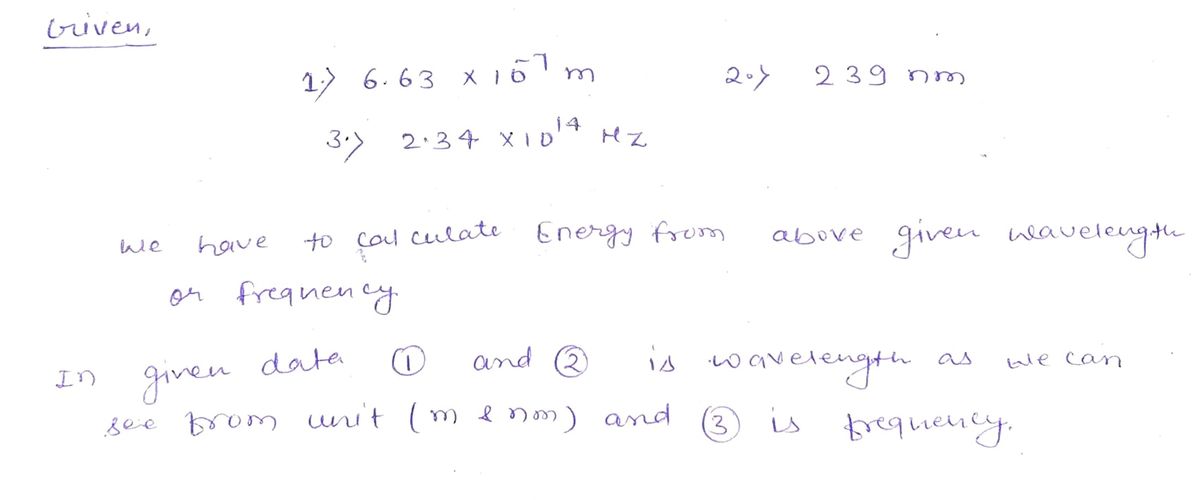 Given,
1.) 6.63 × 10⁻⁷ m 2.) 239 nm
3.) 2.34 × 10¹⁴ HZ
We have to calculate Energy from above given wavelength
or frequency
In given data ① and ② is wavelength as we can
see from unit (m & nm) and ③ is frequency.